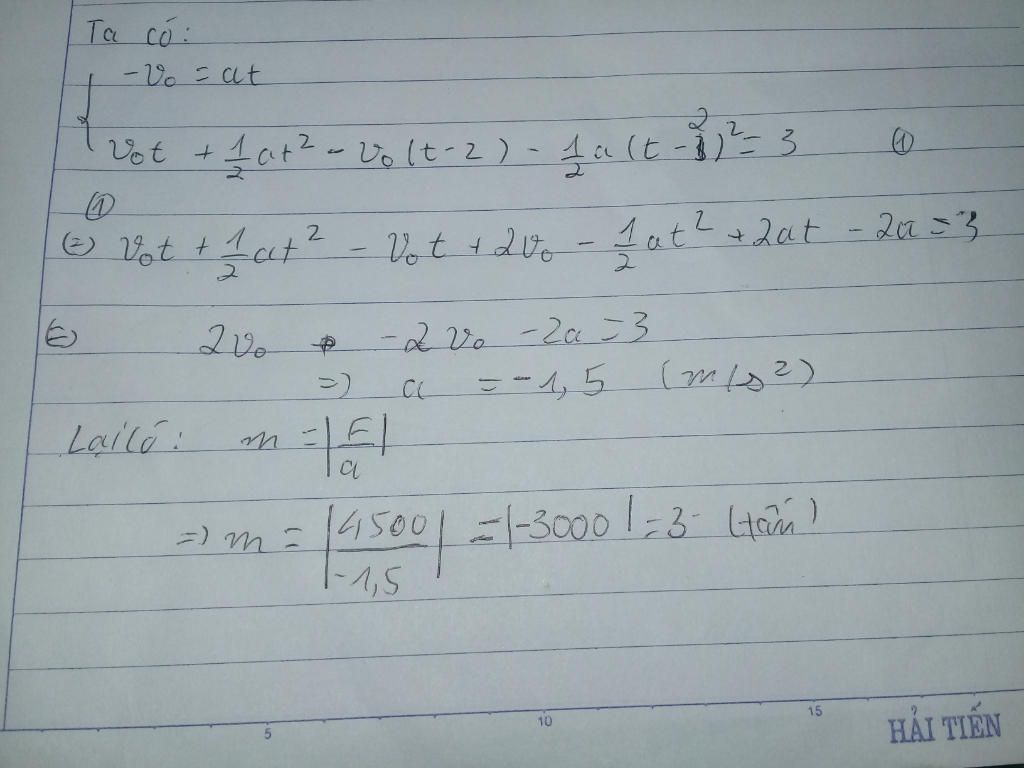 Ta có:
-v₀ = at
v₀t + 1/2 at² - v₀(t-2) - 1/2 a(t-2)² = 3 ①
①
(=) v₀t + 1/2 at² - v₀t + 2v₀ - 1/2 at² + 2at - 2a = 3
(=) 2v₀ - 2v₀ - 2a = 3
=) a = -1,5 (m/s²)
Lại có: m = |F/a|
=) m = |4500/-1,5| = |-3000| = 3 (tấn)
5 10 15
HẢI TIẾN